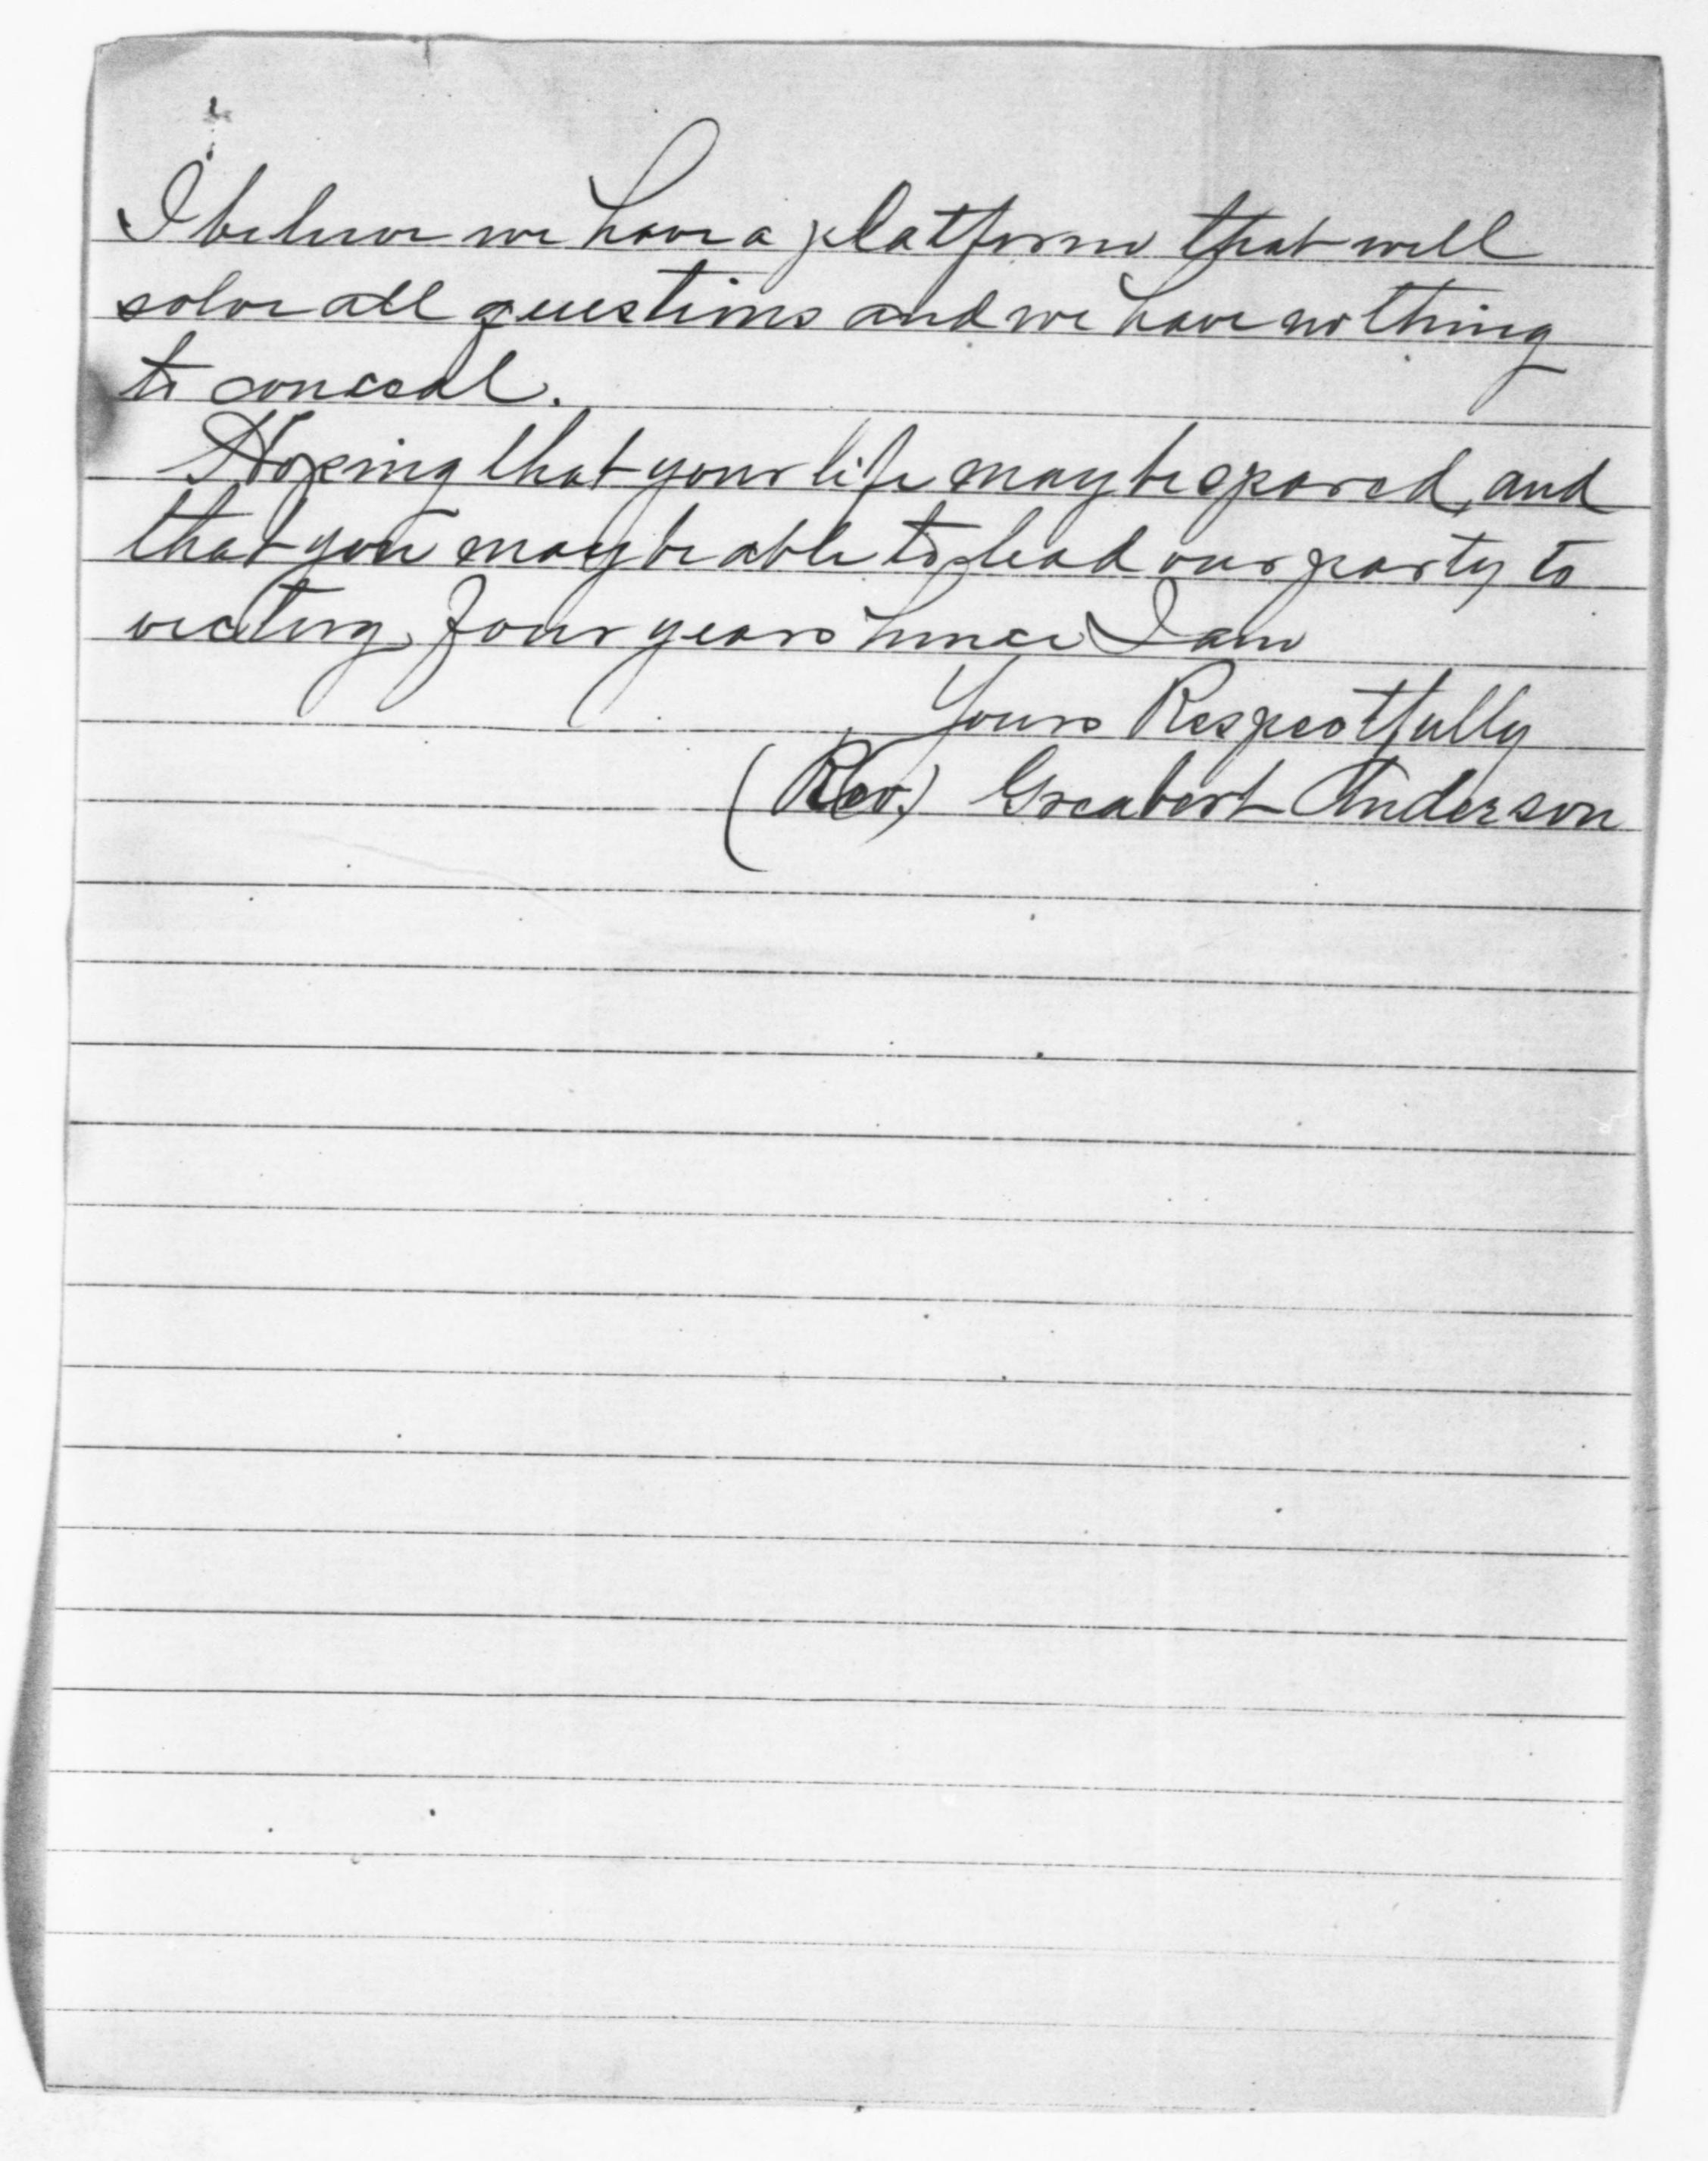 I believe we have a platform that will
solve all questions and we have nothing
to conceal.
Hoping that your life may be spared, and
that you may be able to lead our party to
victory four years hence I am
Yours Respectfully
(Rev.) Greabert Anderson